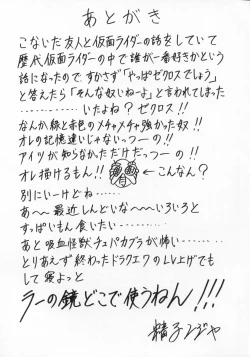 あとがき
こないだ友人と仮面ライダーの話をしていて
歴代仮面ライダーの中で誰が一番好きかという
話になったので、すかさず「やっぱゼクロスでしょう」
と答えたら「そんな奴いねーよ」と言われてしまった
………………いたよね?ゼクロス!!
なんか緑と赤色のメチャメチャ強かった奴!!
オレの記憶違いじゃないっつーの!!
アイツが知らなかっただけだっつーの!!
オレ描けるもん!! ←こんなん?
別にいーけどね……
あ〜最近しんどいな〜〜〜いろいろと
すっぱいもん食いたい………
あと吸血怪獣チュパカブラが怖い………
とりあえず終わったドラクエⅦのLV上げでも
して寝よっと
ラーの鏡どこで使うねん!!!